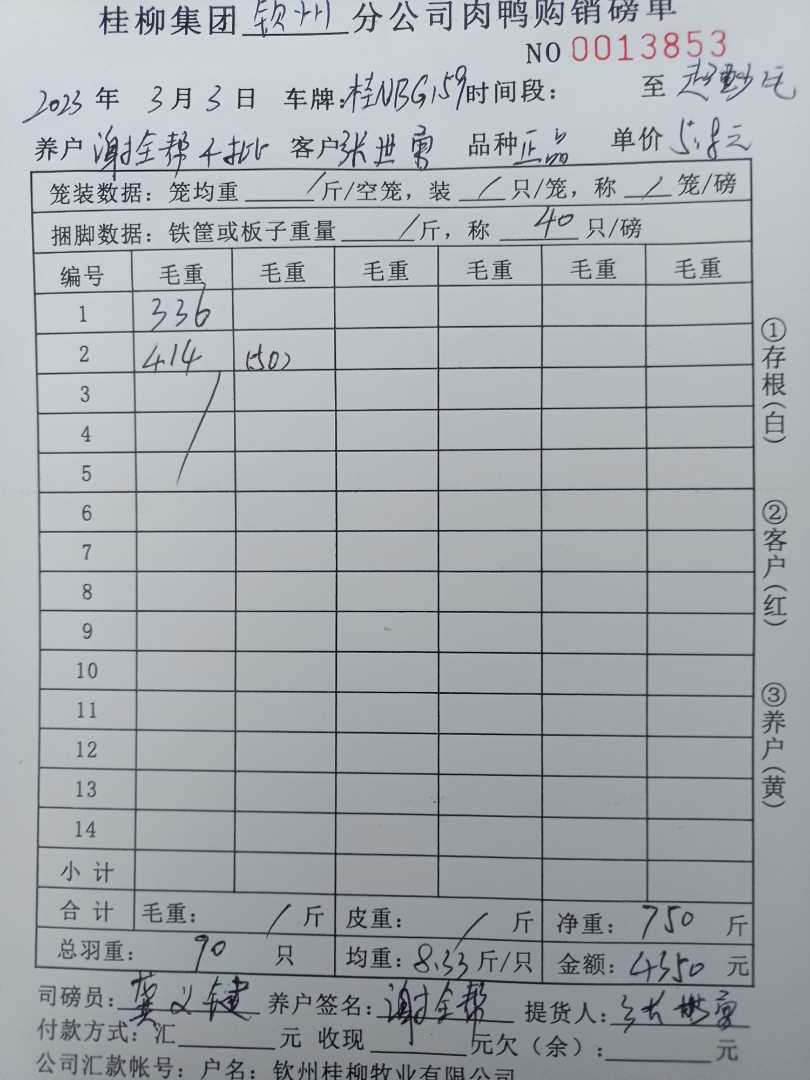 桂柳集团钦州分公司肉鸭购销磅单
NO 0013853
2023年3月3日 车牌:桂NBG159时间段: 至
养户谢全帮 客户张世勇 品种正品 单价5.8元
笼装数据:笼均重/斤/空笼,装/只/笼,称/笼/磅
捆脚数据:铁筐或板子重量/斤,称40只/磅
编号 毛重 毛重 毛重 毛重 毛重 毛重
1 336
2 414 (50)
3
4
5
6
7
8
9
10
11
12
13
14
小计
合计 毛重: / 斤 皮重: / 斤 净重:750斤
总羽重:90只 均重:8.33斤/只 金额:4350元
司磅员:龚义键 养户签名:谢全帮 提货人:张世勇
付款方式:汇 元 收现 元欠(余): 元
公司汇款帐号:户名:钦州桂柳牧业有限公司
①存根(白)
②客户(红)
③养户(黄)